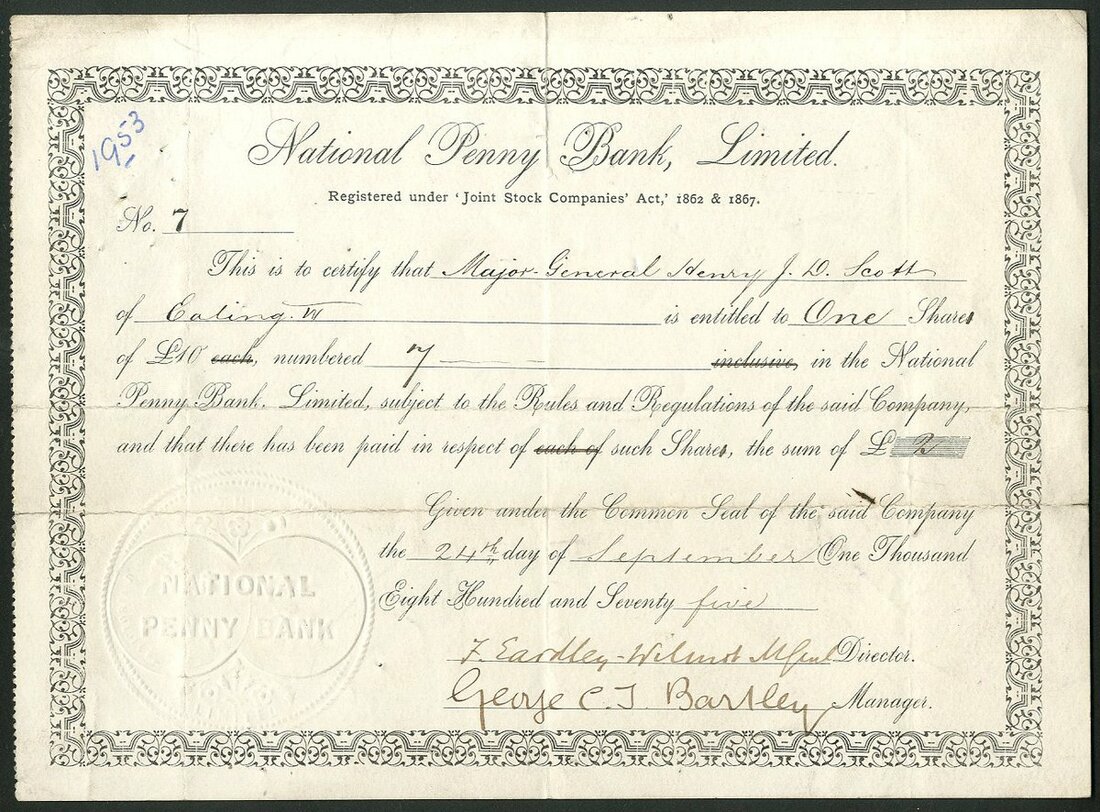 1953
National Penny Bank, Limited.
Registered under 'Joint Stock Companies' Act,' 1862 & 1867.
No. 7
This is to certify that Major-General Henry J. D. Scott
of Ealing. W is entitled to One Shares
of £10 each, numbered 7 inclusive, in the National
Penny Bank, Limited, subject to the Rules and Regulations of the said Company,
and that there has been paid in respect of each of such Shares, the sum of £2
Given under the Common Seal of the said Company
the 24th day of September One Thousand
Eight Hundred and Seventy five
NATIONAL
PENNY BANK
F. Eardley-Wilmot Director.
George C. T. Bartley Manager.